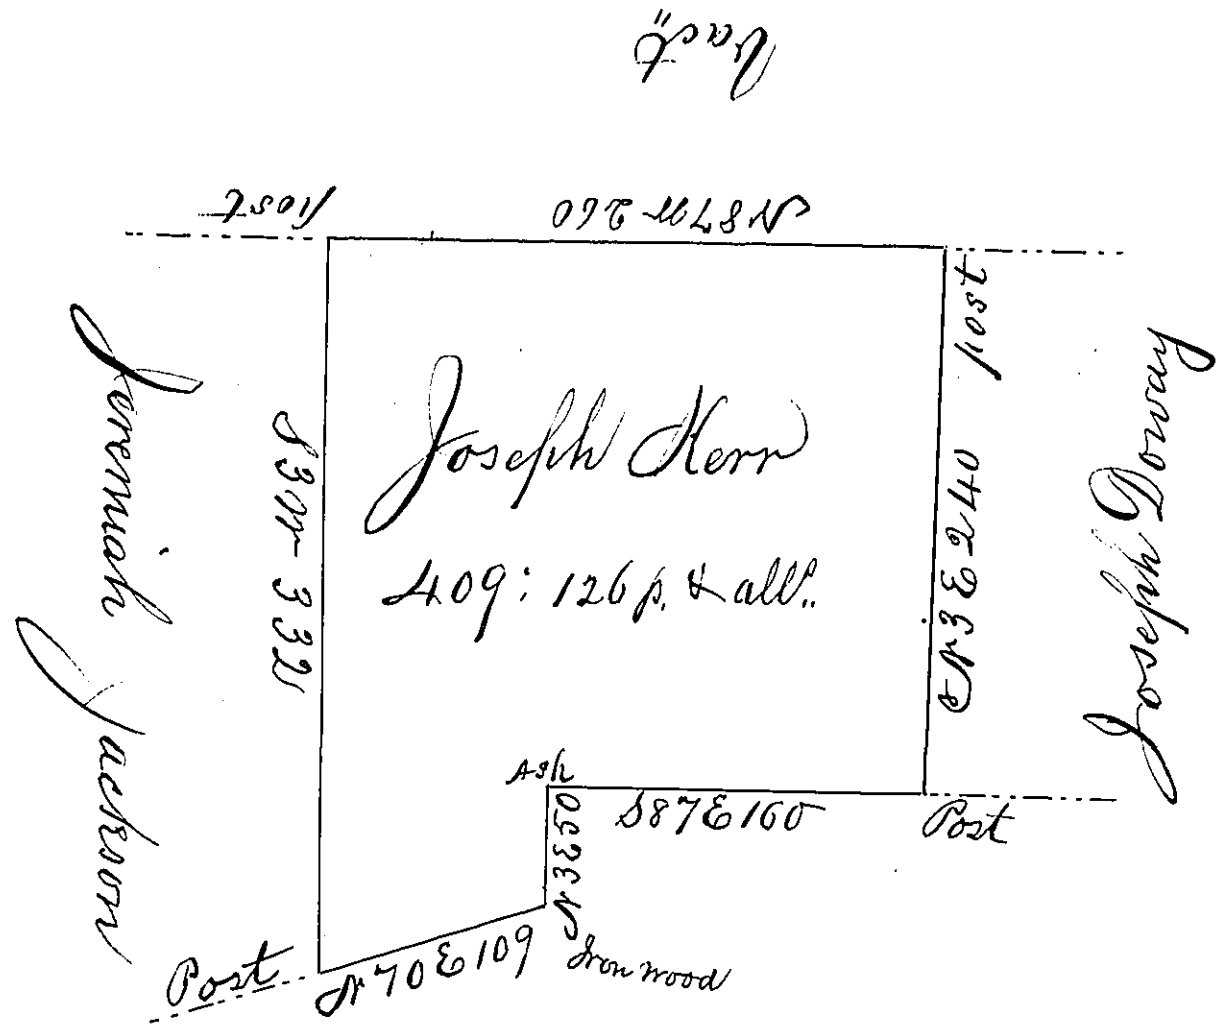 Vact,,
Post
N 87 W 260
post
Jeremiah Jackson
S 3 W 332
Joseph Kerr
409 : 126 p. & all.,,
N 3 E 240
Joseph Dorray
Ash
S 87 E 160
Post
N 3 E 50
Iron wood
N 70 E 109
Post